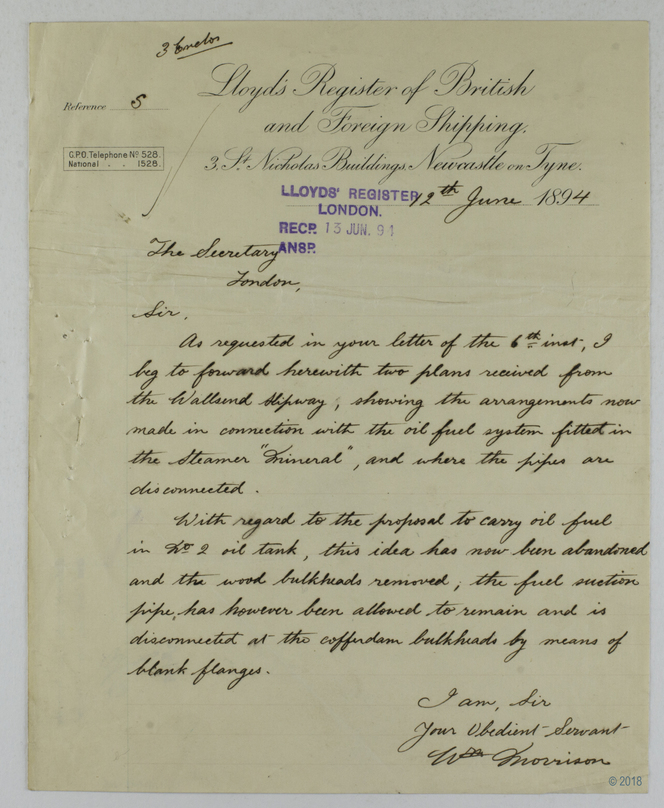 3 Enclos
Lloyd's Register of British
and Foreign Shipping.
Reference S
G.P.O. Telephone No 528.
National . . 1528.
3, St Nicholas Buildings, Newcastle on Tyne.
LLOYDS' REGISTER
LONDON.
RECP. 13 JUN. 94
ANSP.
12th June 1894
The Secretary
London,
Sir,
As requested in your letter of the 6th inst, I
beg to forward herewith two plans received from
the Wallsend Slipway, showing the arrangements now
made in connection with the oil fuel system fitted in
the Steamer "Mineral", and where the pipes are
disconnected.
With regard to the proposal to carry oil fuel
in No 2 oil tank, this idea has now been abandoned
and the wood bulkheads removed; the fuel suction
pipe, has however been allowed to remain and is
disconnected at the cofferdam bulkheads by means of
blank flanges.
I am, Sir
Your Obedient Servant
Wm Morrison
© 2018